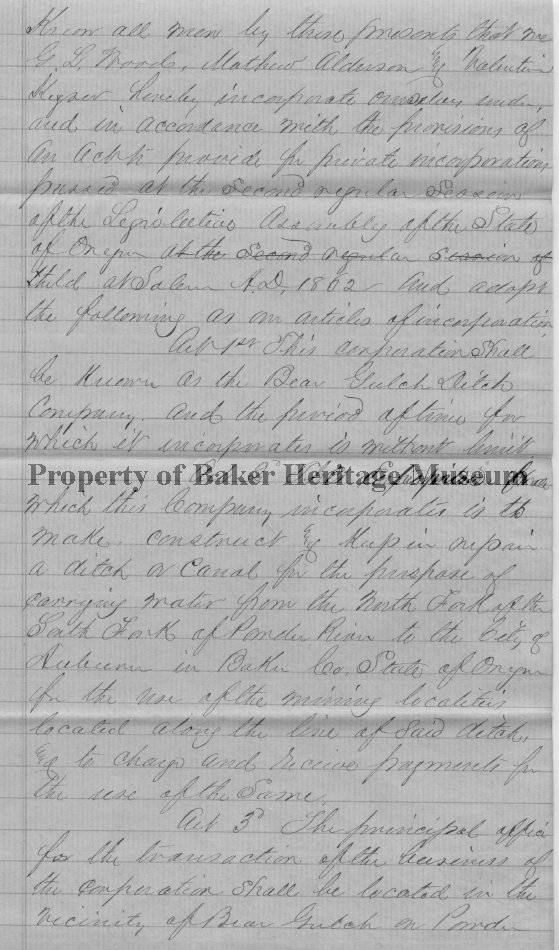 Know all men by these presents that we
G. L. Woods, Mathew Alderson & Valentine
Keyser hereby incorporate ourselves under,
and in accordance with the provisions of
An Act to provide for private incorporations
passed at the Second regular Session
of the Legislative Assembly of the State
of Oregon at the Second regular session of
held at Salem A.D. 1862 And adopt
the following as our articles of incorporation,
Art 1st This corporation shall
be Known as the Bear Gulch Ditch
Company. and the period of time for
which it incorporates is without limit
Property of Baker Heritage Museum
which this Company incorporates is to
make, construct & Keep in repair
a ditch or Canal for the purpose of
carrying water from the North Fork of the
South Fork of Powder River to the City of
Auburn in Baker Co, State of Oregon
for the use of the mining localities
located along the line of said ditch,
& to charge and receive payments for
the use of the Same.
Art 3d The principal office
for the transaction of the business of
the corporation shall be located in the
vicinity of Bear Gulch on Powder